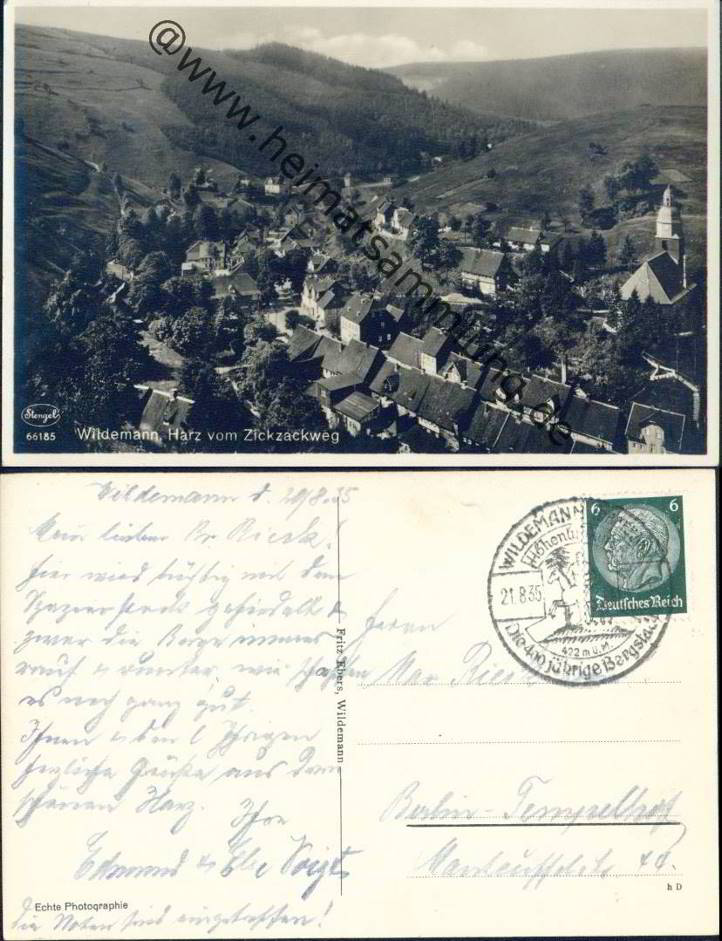 @www.heimatsammlung.de
Stengel
66185
Wildemann, Harz vom Zickzackweg
Wildemann d. 20/8.35
Mein lieber Br. Rieck!
Hier wird tüchtig mit dem
Spazierstock gefiedelt &
zwar die Berge immer
rauf & runter, wir schaffen
es noch ganz gut.
Ihnen & den l. Ihrigen
herzliche Grüße aus dem
schönen Harz. Ihre
Edmund & Else Voigt
Die Noten sind eingetroffen!
Echte Photographie
Fritz Ebers, Wildemann
WILDEMANN
Höhenluft
21.8.35
402 m ü.M.
Die 400 jährige Bergstadt
6 6
Deutsches Reich
Herrn
Max Rieck
Berlin-Tempelhof
h D